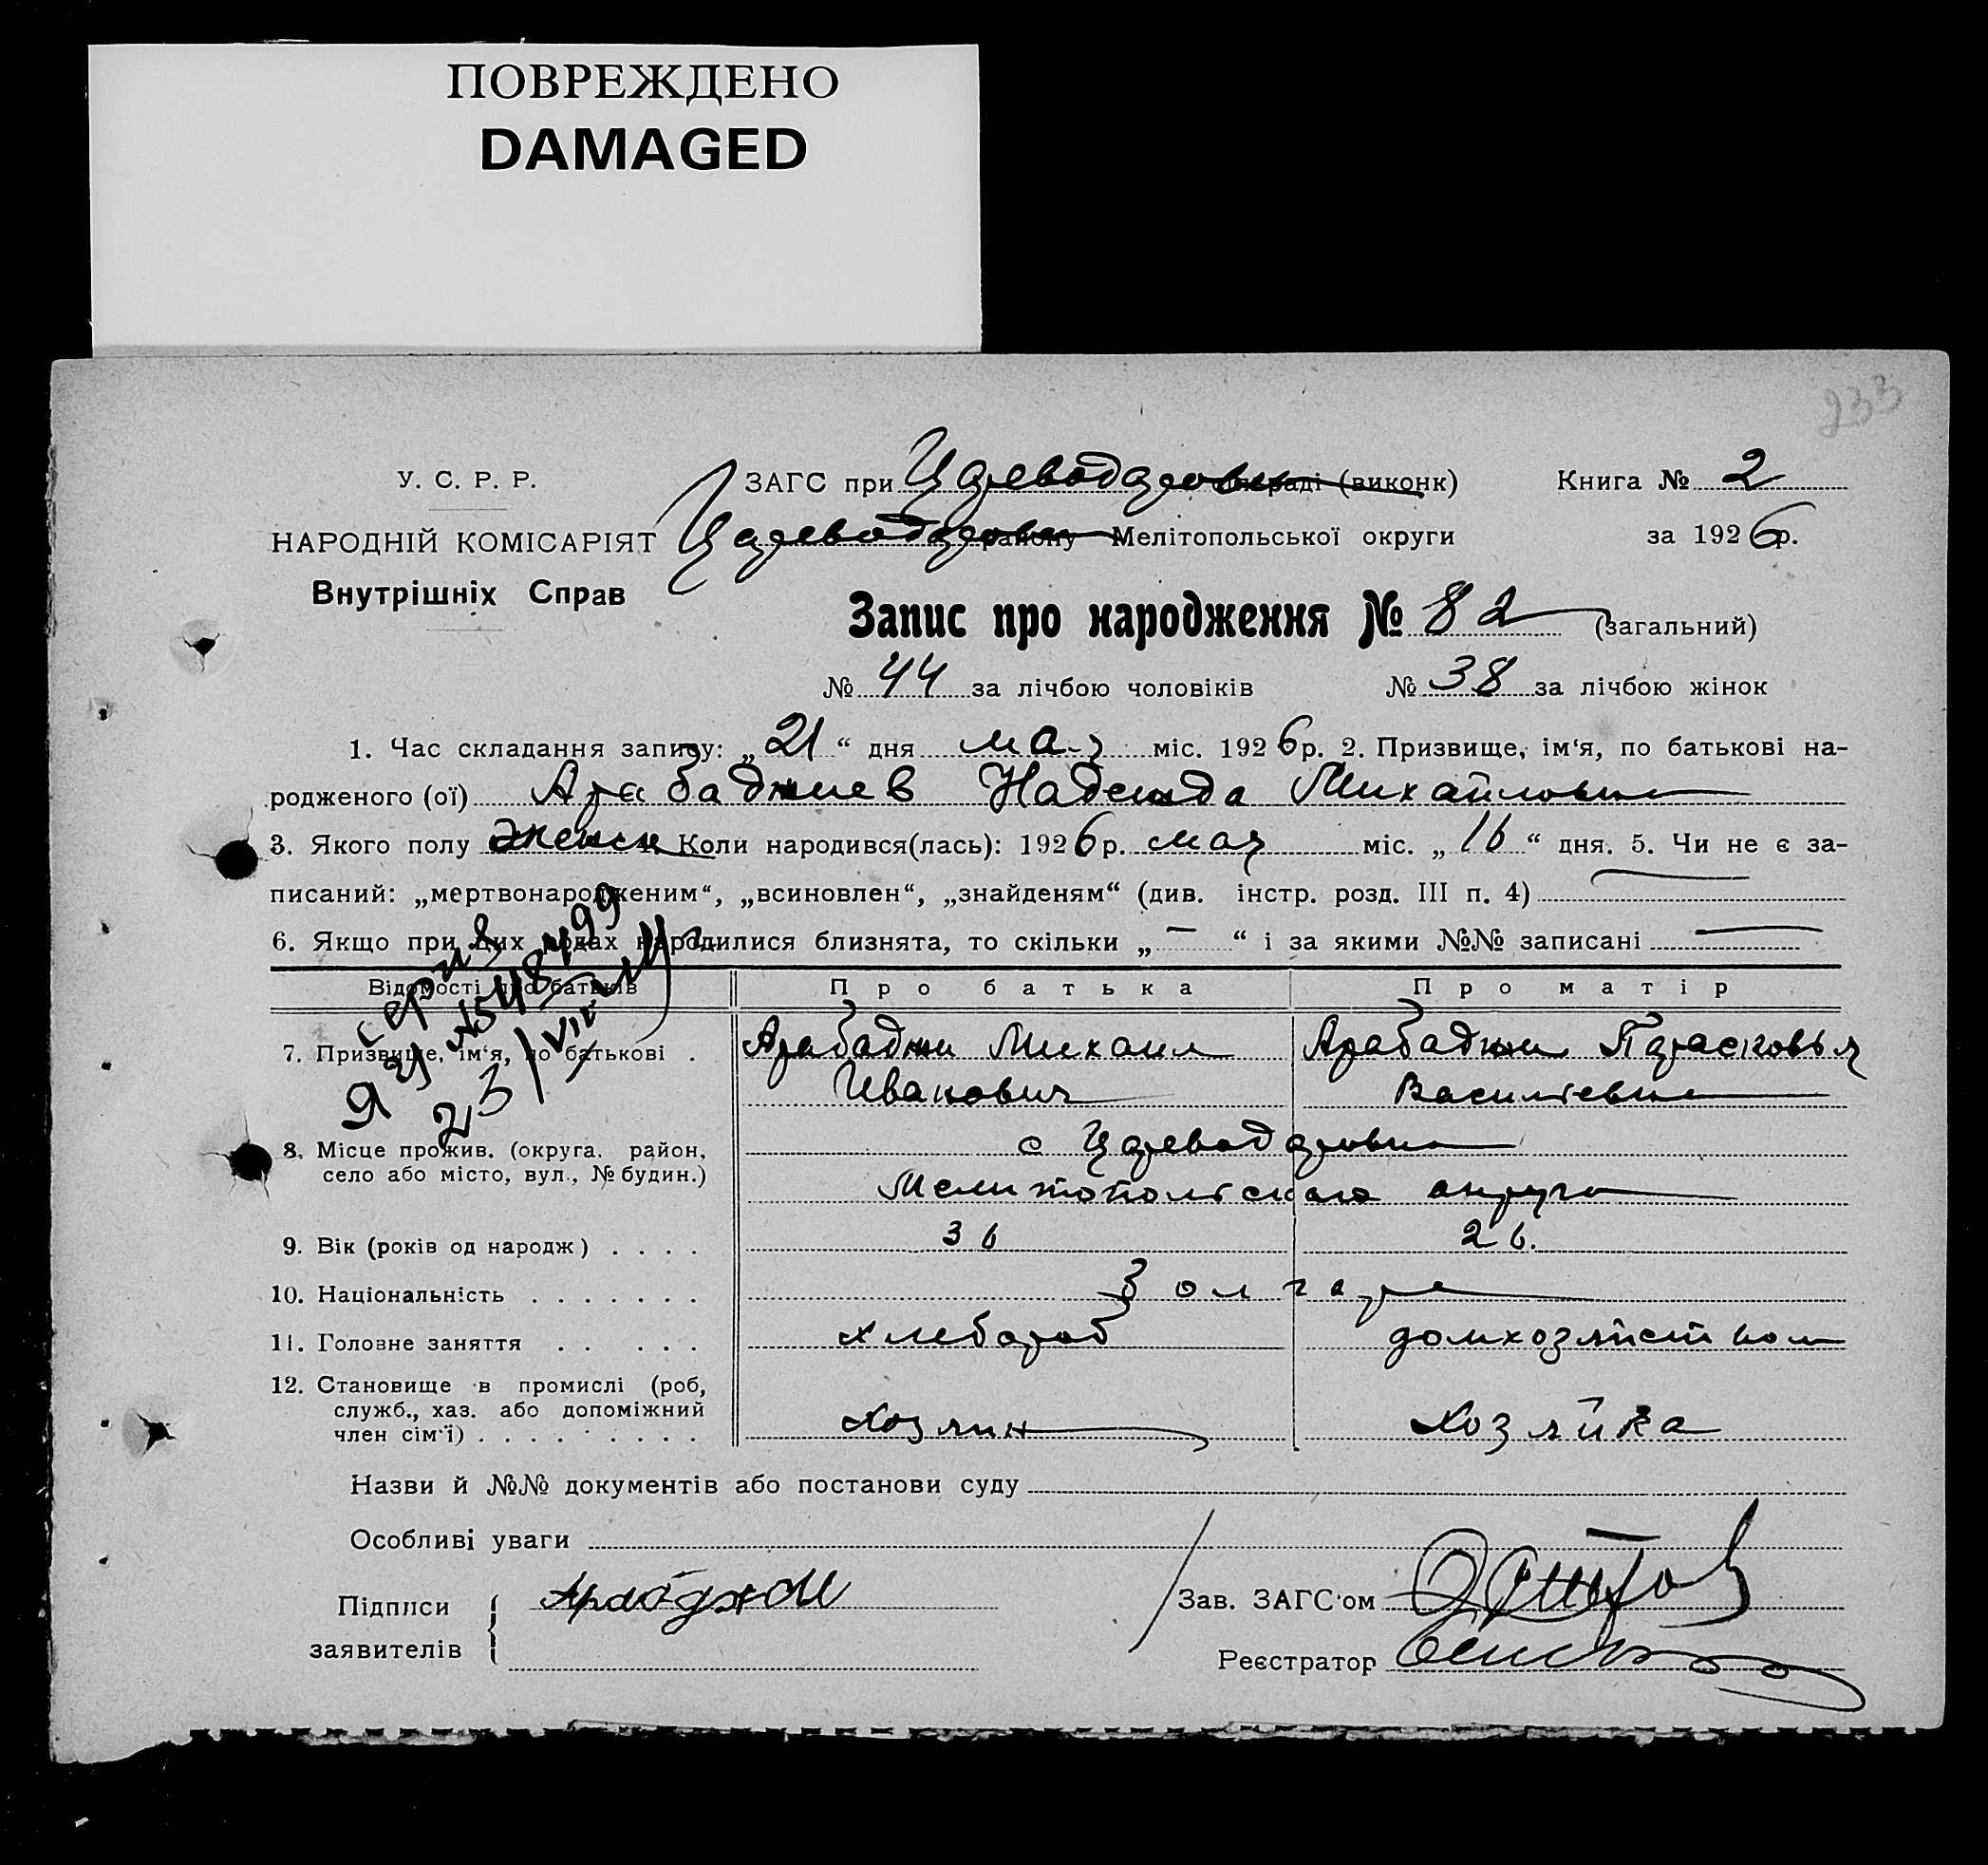 ПОВРЕЖДЕНО
DAMAGED
233
У. С. Р. Р.
ЗАГС при Цареводаровк сільраді (виконк)
Книга № 2
НАРОДНІЙ КОМІСАРІЯТ
Цареводаровк району Мелітопольської округи
за 1926 р.
Внутрішніх Справ
Запис про народження № 82 (загальний)
№ 44 за лічбою чоловіків № 38 за лічбою жінок
1. Час складання запису: „21“ дня мая міс. 1926 р. 2. Призвище, ім‘я, по батькові на-
родженого (ої) Арабаджиев Надежда Михайловна
3. Якого полу женск 4. Коли народився(лась): 1926 р. мая міс. „16“ дня. 5. Чи не є за-
писаний: „мертвонародженим“, „всиновлен“, „знайденям“ (див. інстр. розд. III п. 4)
6. Якщо при цих родах народилися близнята, то скільки „—“ і за якими №№ записані —
Відомості про батьків
Про батька
Про матір
серия
ЯЯ №
23/VII
7. Призвище, ім‘я, по батькові .
Арабаджи Михаил
Иванович
Арабаджи Парасковья
Васильевна
8. Місце прожив. (округа. район,
село або місто, вул., № будин.)
с Царевод
Мелитопольского округа
9. Вік (років од народж) . . . .
36
26.
10. Національність . . . . . . .
Болгаре
11. Головне заняття . . . . .
хлебороб
домхозяйством
12. Становище в промислі (роб,
служб., хаз. або допоміжний
член сім‘ї) . . . . . . . . .
Хозяин
Хозяйка
Назви й №№ документів або постанови суду
Особливі уваги
Підписи
заявителів
Зав. ЗАГС‘ом
Реєстратор